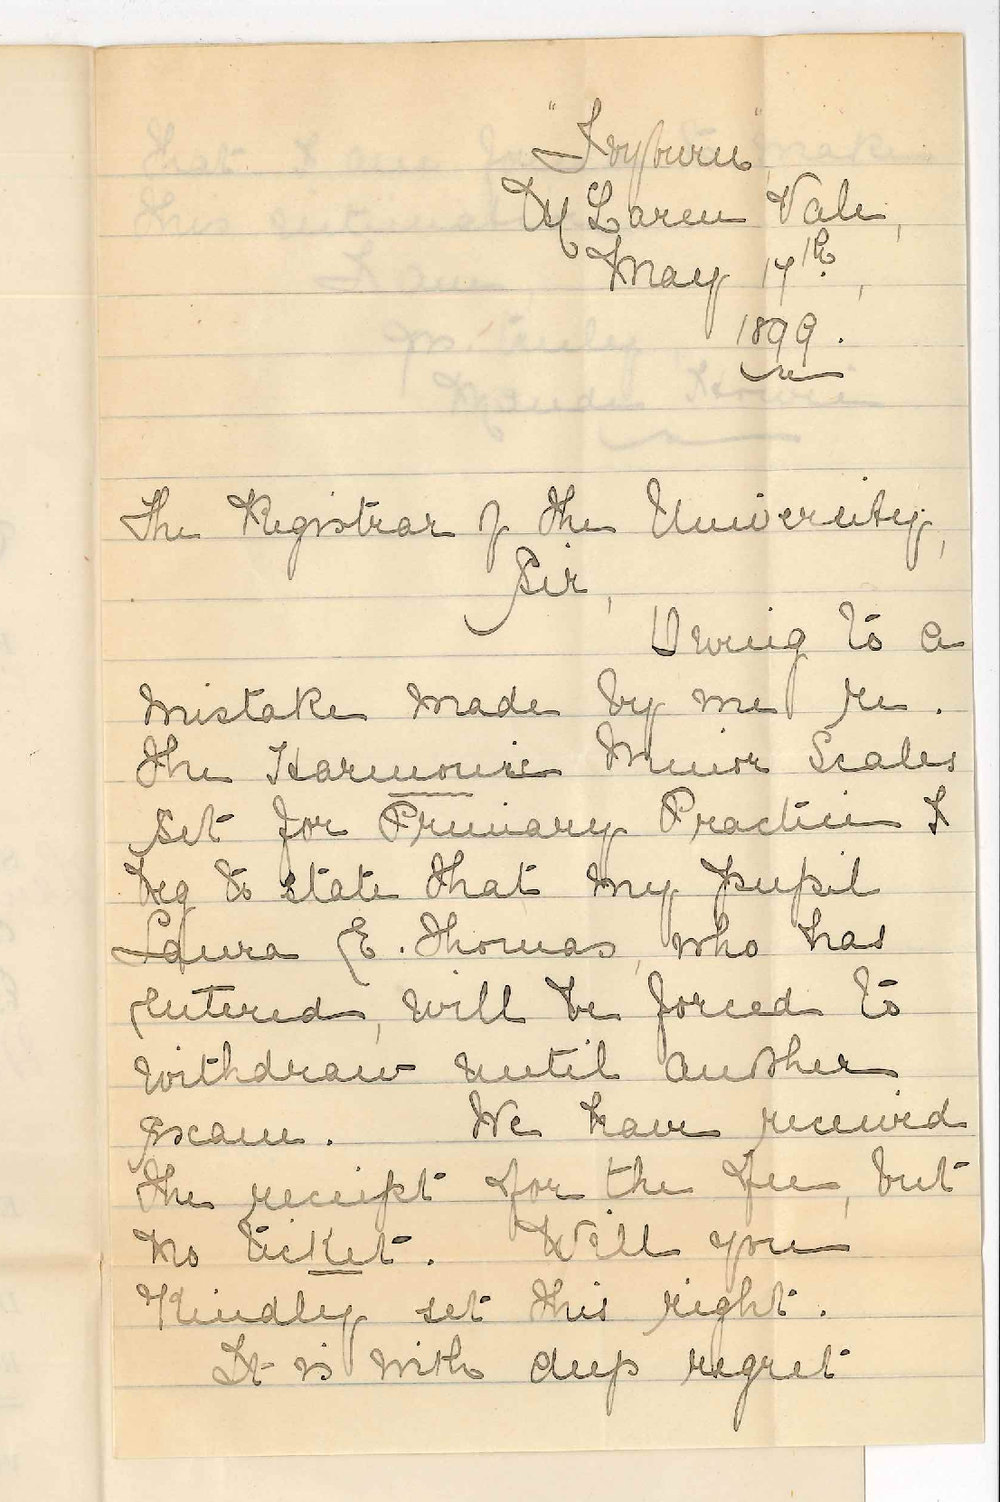 "Ivyburn"
McLaren Vale,
May 17th,
1899.
The Registrar of the University,
Sir,
Owing to a
mistake made by me re.
the Harmonic Minor Scales
set for Primary Practice I
beg to state that my pupil
Laura E. Thomas, who has
entered, will be forced to
withdraw until another
exam. We have received
the receipt for the fee, but
no ticket. Will you
Kindly set this right.
It is with deep regret